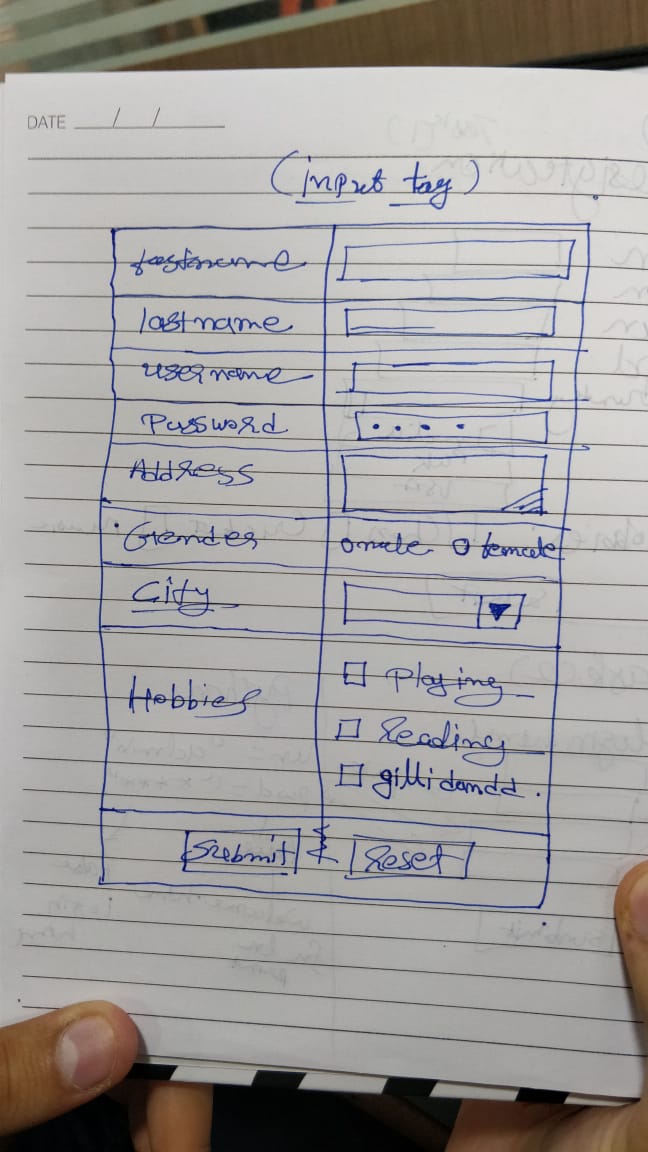 DATE / /
(input tag)
firstname
lastname
username
Password
Address
Gender o male o female
City
Hobbies
Playing
Reading
gilli dandd.
Submit Reset